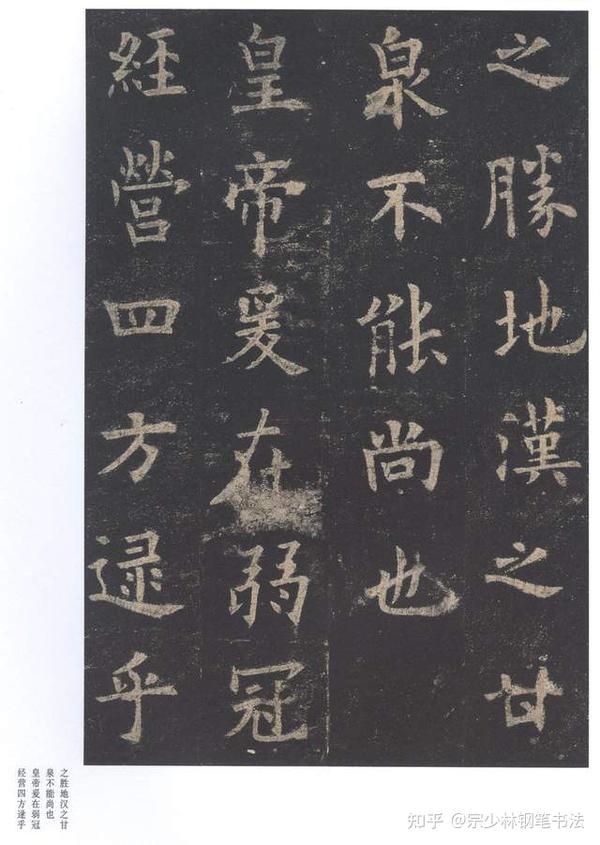 之勝地漢之甘
泉不能尚也
皇帝爰在弱冠
經營四方逯乎
之胜地汉之甘
泉不能尚也
皇帝爰在弱冠
经营四方逯乎
知乎 @宗少林钢笔书法